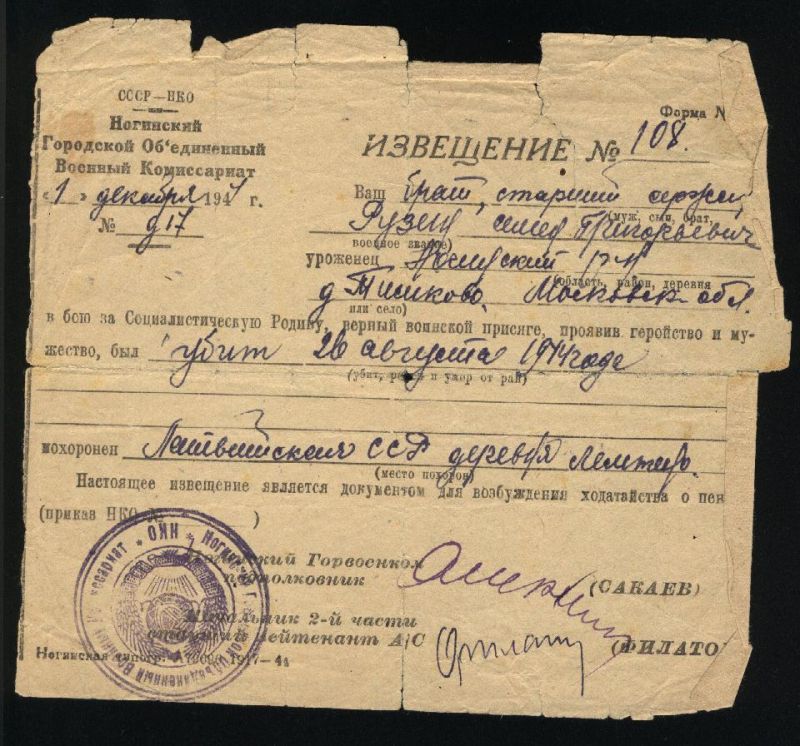 СССР—НКО
Ногинский
Городской Об'единенный
Военный Комиссариат
«1» декабря 1944 г.
№ д17
Форма №
ИЗВЕЩЕНИЕ № 108.
Ваш брат, старший
(муж, сын, брат,
Григорьевич
военное звание)
уроженец Ногинский р-н
(область, район, деревня
д Московск обл.
или село)
в бою за Социалистическую Родину, верный воинской присяге, проявив геройство и му-
жество, был убит 26 августа 1944 года
(убит, ранен и умер от ран)
похоронен Латвийская ССР деревня
(место похорон)
Настоящее извещение является документом для возбуждения ходатайства о пен
(приказ НКО № )
Ногинский Горвоенком
подполковник
(САКАЕВ)
Начальник 2-й части
старший лейтенант А/С
(ФИЛАТО
Ногинская типогр.